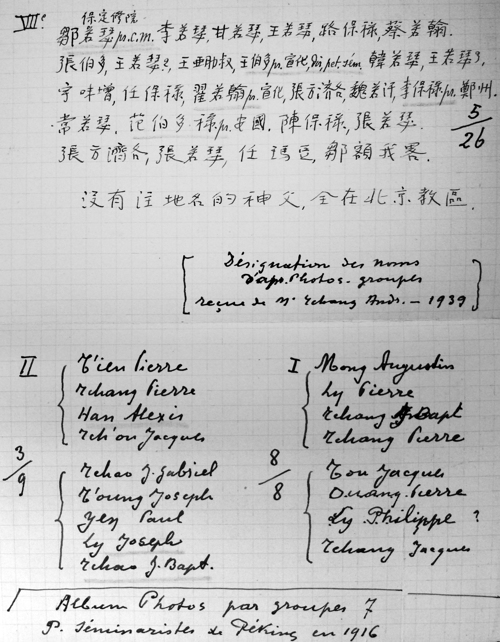 VIIe
保定修院
鄒若瑟p.c.m. 李若瑟, 甘若瑟, 王若瑟, 路保祿, 蔡若翰.
張伯多, 王若瑟2, 王亜肋叔, 王伯多p.宣化, 韓若瑟, 王若瑟3,
任保祿, 翟若翰p.宣化, 張方濟各, 魏若汗, 李保祿p. 鄭州.
常若瑟. 范伯多祿p.安國. 陳保祿, 張若瑟.
5/26
張方濟各, 張若瑟, 任瑪豆, 鄒額我畧.
沒有注地名的神父, 全在北京教區.
Désignation des noms
D'apr. Photos-groupes
reçue de Mr Tchang Andr. — 1939
II
T'ien Pierre
Tchang Pierre
Han Alexis
Tch'ou Jacques
3/9
Tchao J. Gabriel
T'oung Joseph
Yen Paul
Ly Joseph
Tchao J. Bapt.
I
Mong Augustin
Ly Pierre
Tchang J. Bapt
Tchang Pierre
8/8
Tou Jacques
Ouang Pierre
Ly Philippe ?
Tchang Jacques
Album Photos par groupes 7
P. Séminaristes de Péking en 1916